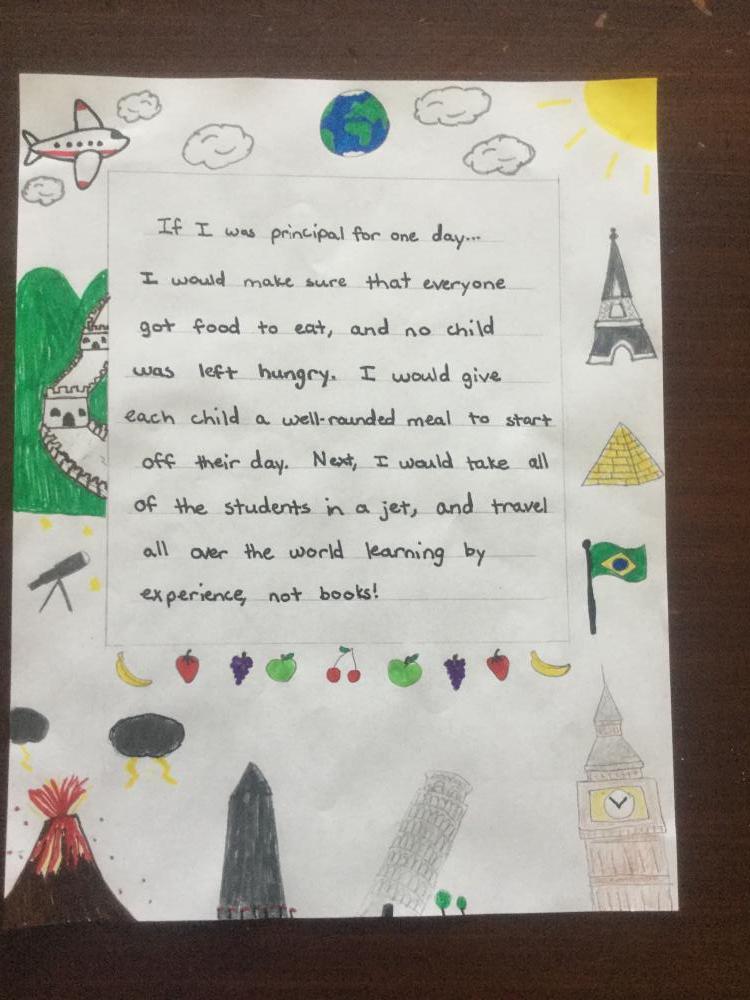 If I was principal for one day...
I would make sure that everyone
got food to eat, and no child
was left hungry. I would give
each child a well-rounded meal to start
off their day. Next, I would take all
of the students in a jet, and travel
all over the world learning by
experience, not books!